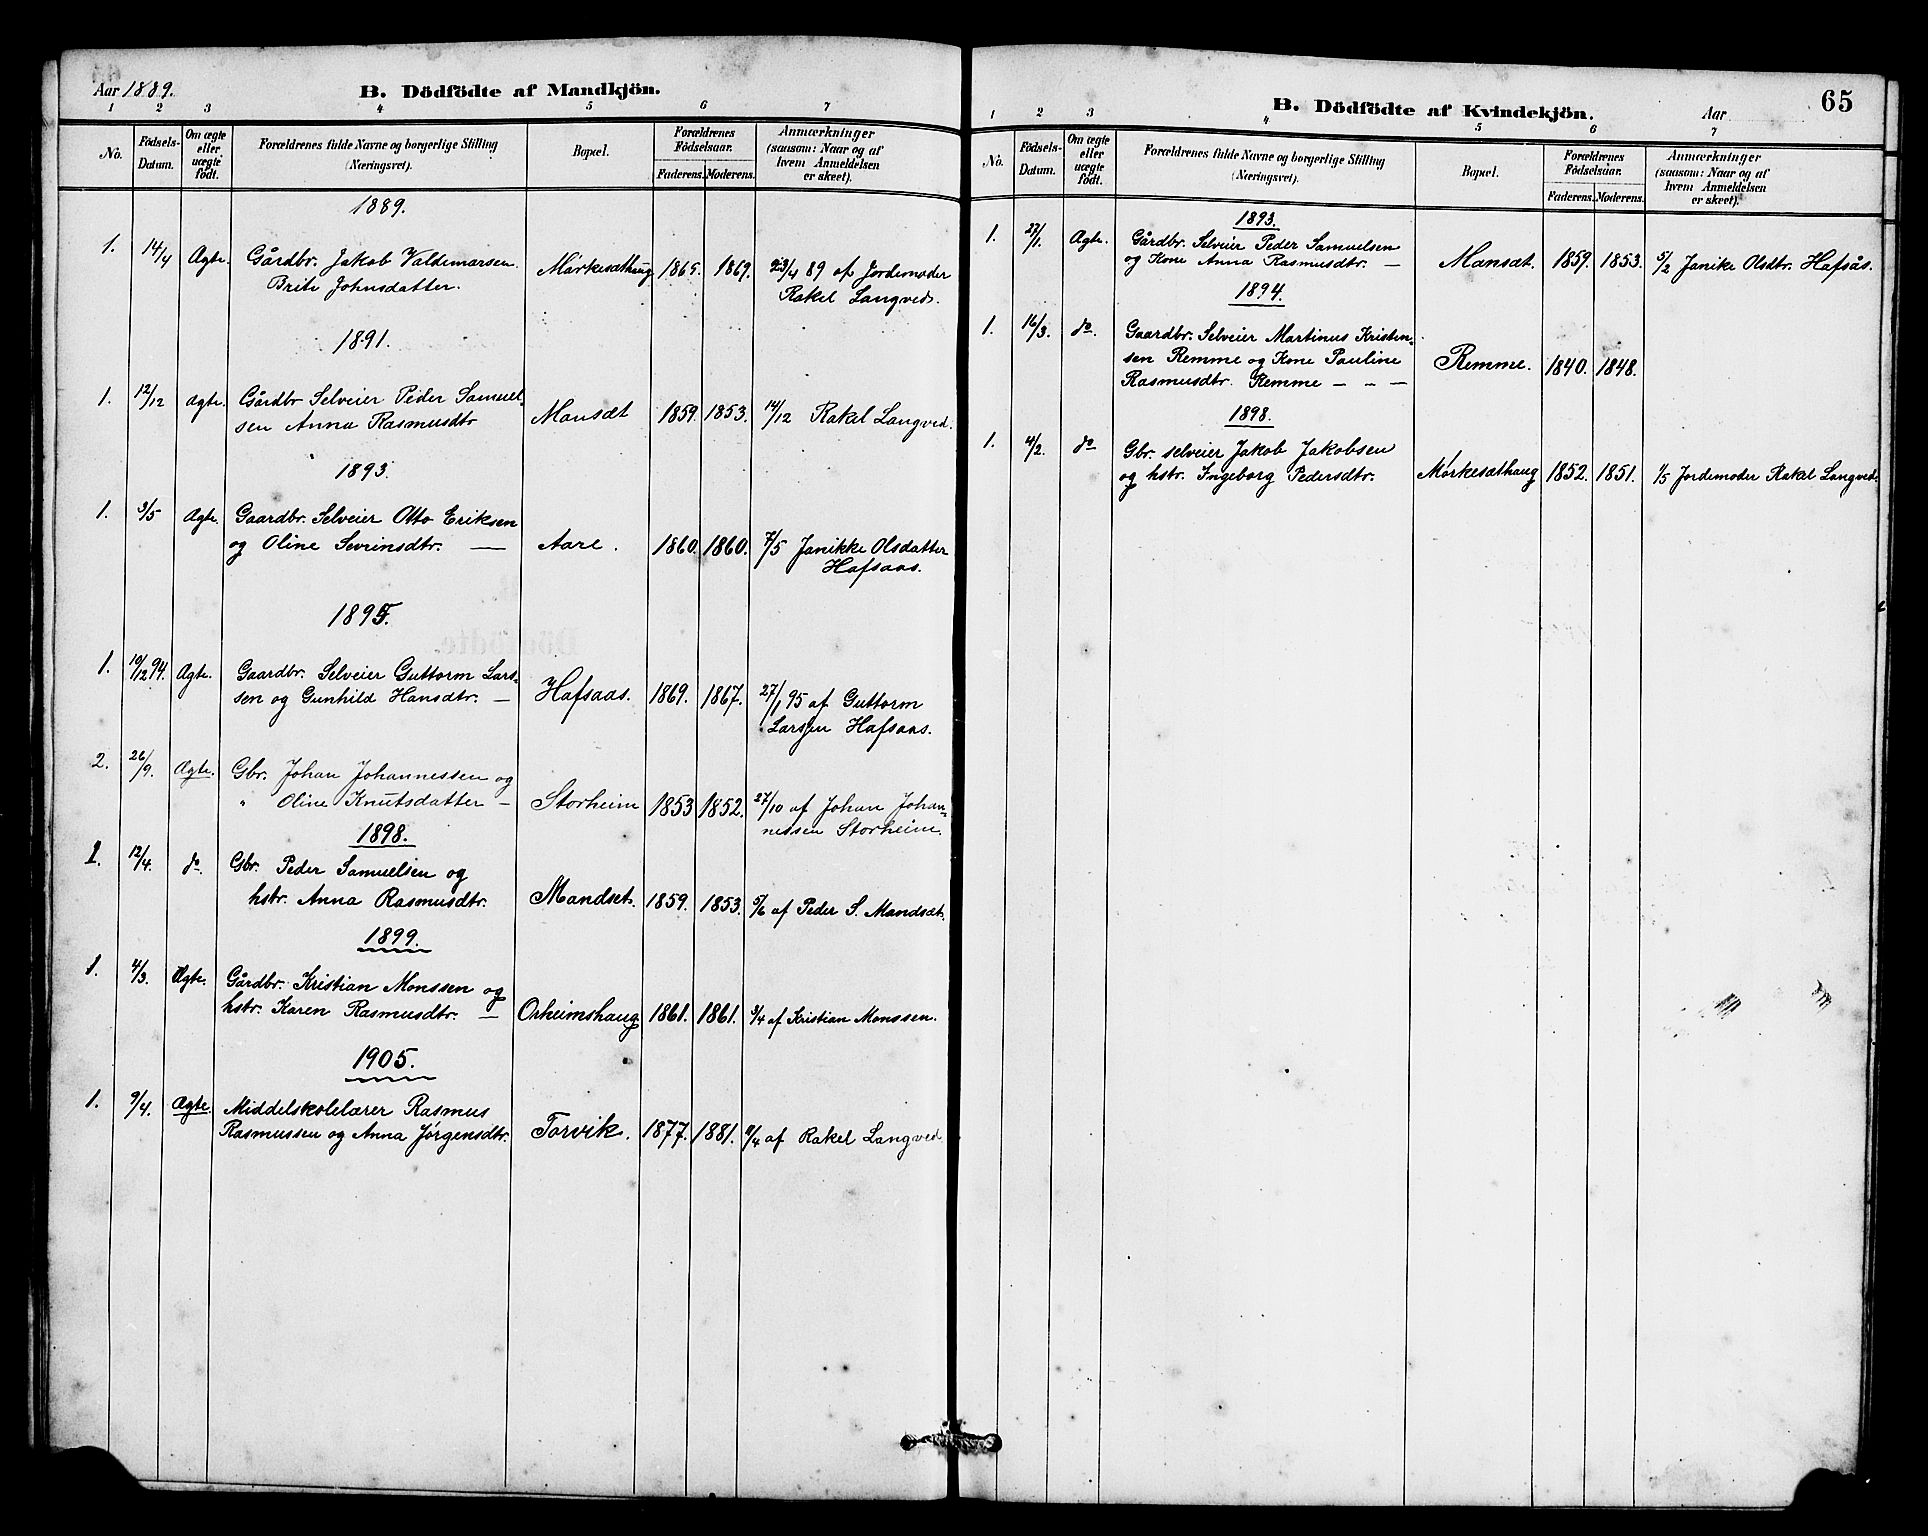 Aar 1889.
B. Dödfödte af Mandkjön.
1 2 3 4 5 6 7
No.
Födsels-Datum.
Om ægte eller uægte født.
Forældrenes fulde Navne og borgerlige Stilling (Næringsvei).
Bopæl.
Forældrenes Födselsaar.
Faderens. Moderens.
Anmærkninger (saasom: Naar og af hvem Anmeldelsen er skeet).
1889.
1. 14/4 Ægte. Gårdbr. Jakob Valdemarsen Mørkesæthaug 1865. 1869. 23/4 89 af Jordemoder
Brite Johnsdatter. Rakel Langved.
1891.
1. 12/12 ægte. Gårdbr Selveier Peder Samuel-
sen Anna Rasmusdtr Mansæt 1859. 1853. 14/12 Rakel Langved.
1893.
1. 3/5 Ægte. Gaardbr. Selveier Otto Eriksen
og Oline Sevrinsdtr. — Aare. 1860. 1860. 7/5 Janikke Olsdatter
Hafsaas.
1895.
1. 10/12 94. Ægte. Gaardbr. Selveier Guttorm Lars-
sen og Gunhild Hansdtr. — Hafsaas. 1869. 1867. 27/1 95 af Guttorm
Larsen Hafsaas.
2. 26/9. Ægte. Gbr. Johan Johannessen og
" Oline Knutsdatter — Storheim 1853 1852. 27/10 af Johan Johan-
nessen Storheim.
1898.
1. 12/4. do. Gbr. Peder Samuelsen og
hstr. Anna Rasmusdtr. Mandset. 1859. 1853. 5/6 af Peder S. Mandsæt.
1899.
1. 4/3. Ægte. Gårdbr. Kristian Monssen og
hstr. Karen Rasmusdtr. — Orheimshaug 1861. 1861. 3/4 af Kristian Monssen.
1905.
1. 9/4. Ægte. Middelskolelærer Rasmus
Rasmussen og Anna Jørgensdtr. Torvik. 1877. 1881. 11/4 af Rakel Langved
B. Dödfödte af Kvindekjön.
Aar
65
1 2 3 4 5 6 7
No.
Födsels-Datum.
Om ægte eller uægte födt.
Forældrenes fulde Navne og borgerlige Stilling (Næringsvei).
Bopæl.
Forældrenes Födselsaar.
Faderens. Moderens.
Anmærkninger (saasom: Naar og af hvem Anmeldelsen er skeet).
1893.
1. 27/1. Ægte. Gårdbr. Selveier Peder Samuelsen
og Kone Anna Rasmusdtr. — Mansæt. 1859. 1853. 5/2 Janike Olsdtr. Hafsås.
1894.
1. 16/3. do. Gaardbr. Selveier Martinus Kristen-
sen Remme og Kone Pauline Remme. 1840. 1848.
Rasmusdtr. Remme — " —
1898.
1. 4/2. do Gbr. selveier Jakob Jakobsen
og hstr. Ingeborg Pedersdtr. Mørkesæthaug 1852. 1851. 1/5 Jordemoder Rakel Langved.